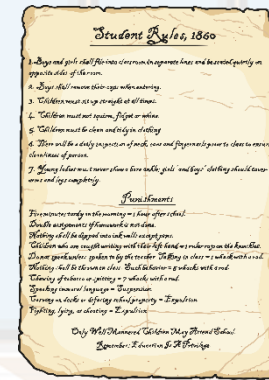 Student Rules, 1860
1. Boys and girls shall file into classroom in separate lines and be seated quietly on
opposite sides of the room.
2. Boys shall remove their caps when entering.
3. Children must sit up straight at all times.
4. Children must not squirm, fidget or whine.
5. Children must be clean and tidy in clothing
6. There will be a daily inspection of neck, ears and fingernails prior to class to ensure
cleanliness of person.
7. Young ladies must never show a bare ankle; girls' and boys' clothing should cover
arms and legs completely.
Punishments
Five minutes tardy in the morning = 1 hour after school.
Double assignments if homework is not done.
Nothing shall be dipped into ink wells except pens.
Children who are caught writing with their left hand = ruler raps on the knuckles.
Do not speak unless spoken to by the teacher. Talking in class = whack with a rod.
Nothing shall be thrown in class. Such behavior = whacks with a rod.
Chewing of tobacco or spitting = 7 whacks with a rod.
Speaking immoral language = Suspension
Carving on desks or defacing school property = Expulsion
Fighting, lying, or cheating = Expulsion
Only Well Mannered Children May Attend School.
Remember: Education Is A Privilege